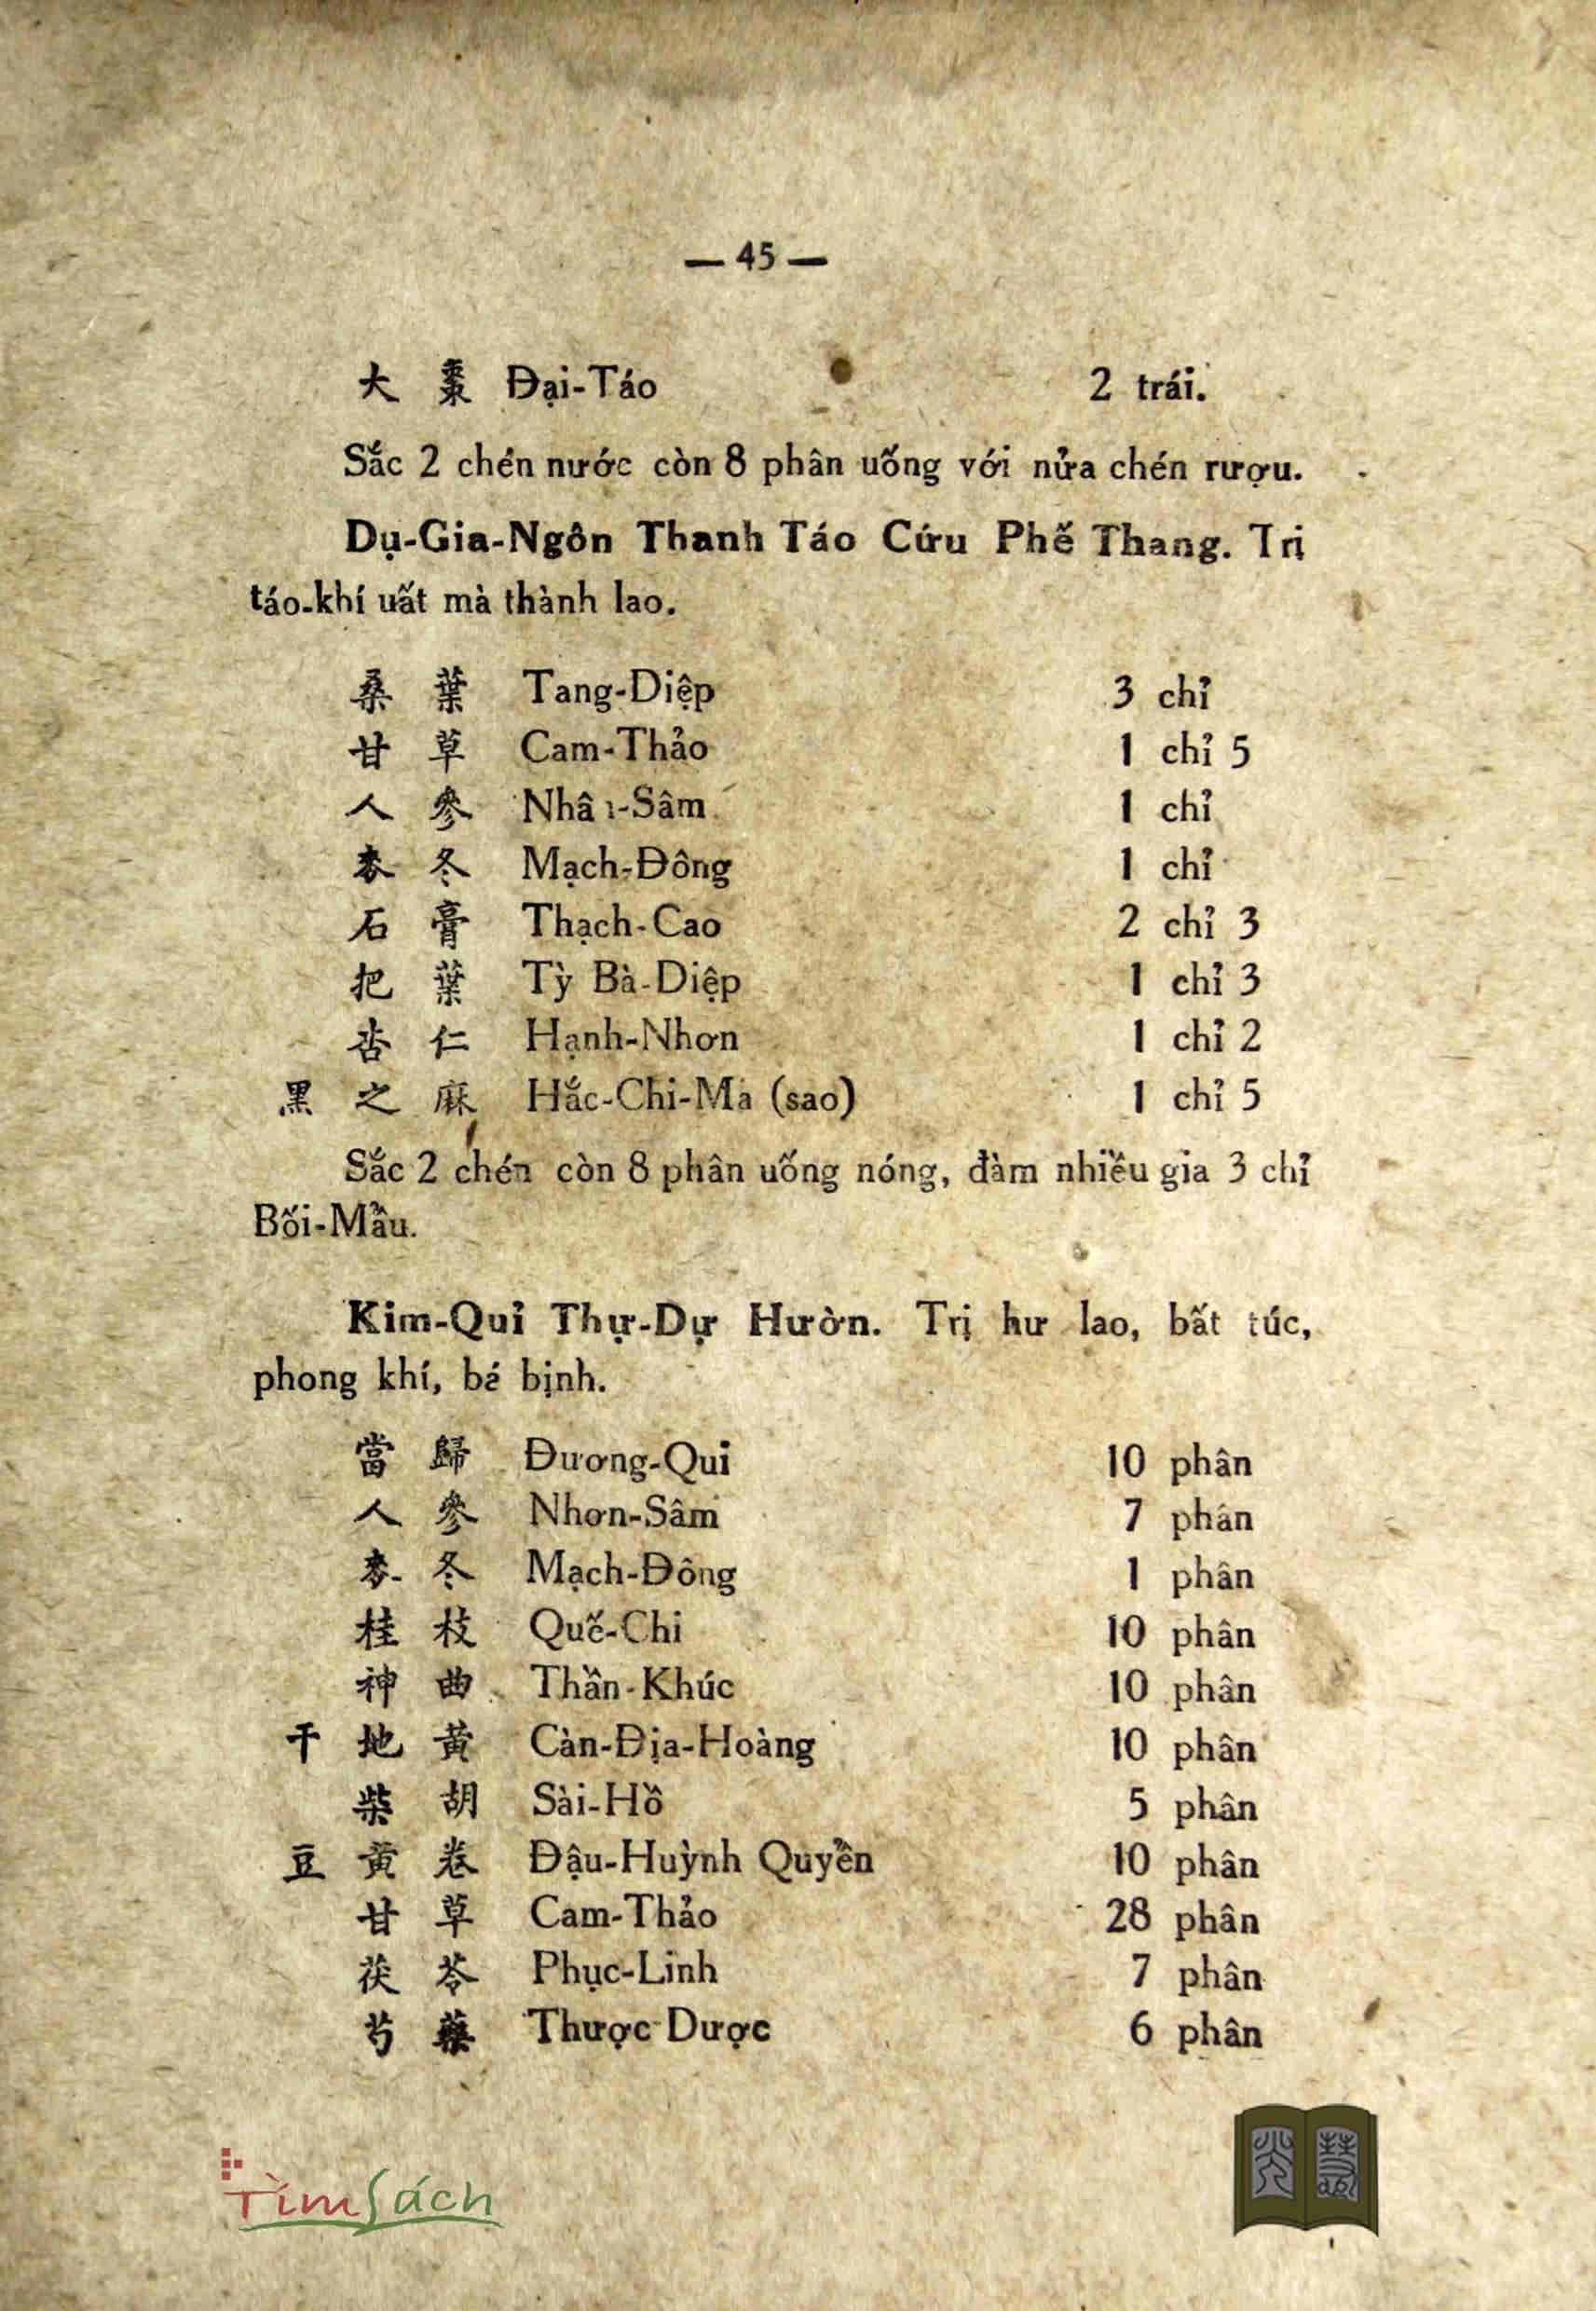 — 45 —
大棗 Đại-Táo 2 trái.
Sắc 2 chén nước còn 8 phân uống với nửa chén rượu.
Dụ-Gia-Ngôn Thanh Táo Cứu Phế Thang. Trị
táo-khí uất mà thành lao.
桑葉 Tang-Diệp 3 chỉ
甘草 Cam-Thảo 1 chỉ 5
人參 Nhân-Sâm 1 chỉ
麥冬 Mạch-Đông 1 chỉ
石膏 Thạch-Cao 2 chỉ 3
把葉 Tỳ Bà-Diệp 1 chỉ 3
杏仁 Hạnh-Nhơn 1 chỉ 2
黑之麻 Hắc-Chi-Ma (sao) 1 chỉ 5
Sắc 2 chén còn 8 phân uống nóng, đàm nhiều gia 3 chỉ
Bối-Mẫu.
Kim-Quỉ Thự-Dự Hườn. Trị hư lao, bất túc,
phong khí, bá bịnh.
當歸 Đương-Qui 10 phân
人參 Nhơn-Sâm 7 phân
麥冬 Mạch-Đông 1 phân
桂枝 Quế-Chi 10 phân
神曲 Thần-Khúc 10 phân
干地黃 Càn-Địa-Hoàng 10 phân
柴胡 Sài-Hồ 5 phân
豆黃卷 Đậu-Huỳnh Quyển 10 phân
甘草 Cam-Thảo 28 phân
茯苓 Phục-Linh 7 phân
芍藥 Thược Dược 6 phân
TìmSách